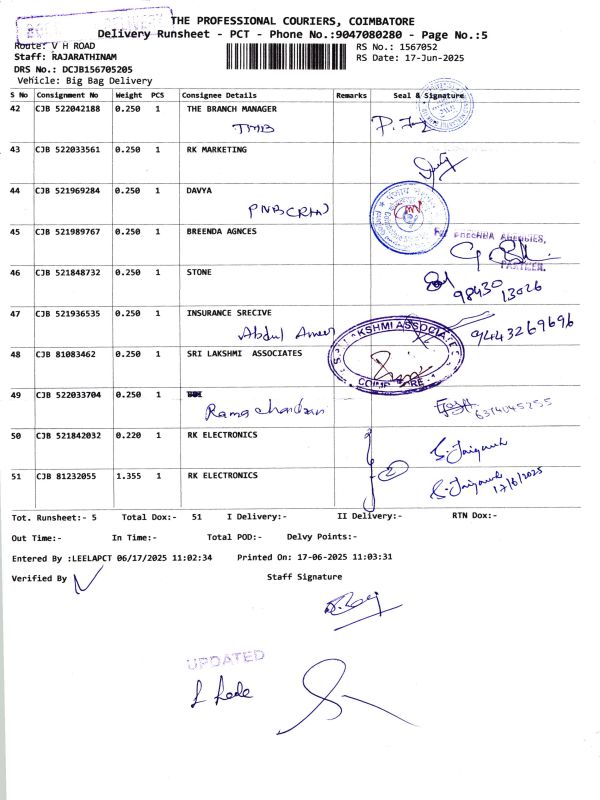 THE PROFESSIONAL COURIERS, COIMBATORE
Delivery Runsheet - PCT - Phone No.:9047080280 - Page No.:5
Route: V H ROAD
RS No.: 1567052
Staff: RAJARATHINAM
RS Date: 17-Jun-2025
DRS No.: DCJB156705205
Vehicle: Big Bag Delivery
S No Consignment No Weight PCS Consignee Details Remarks Seal & Signature
42 CJB 522042188 0.250 1 THE BRANCH MANAGER
TMB
43 CJB 522033561 0.250 1 RK MARKETING
44 CJB 521969284 0.250 1 DAVYA
PNB
45 CJB 521989767 0.250 1 BREENDA AGNCES
AGENCIES,
PARTNER.
46 CJB 521848732 0.250 1 STONE
98430
13026
47 CJB 521936535 0.250 1 INSURANCE SRECIVE
Abdul Ameer
9443269696
48 CJB 81083462 0.250 1 SRI LAKSHMI ASSOCIATES
SRI LAKSHMI ASSOCIATES
49 CJB 522033704 0.250 1
Rama Chandran
6374045255
50 CJB 521842032 0.220 1 RK ELECTRONICS
2
51 CJB 81232055 1.355 1 RK ELECTRONICS
17/6/2025
Tot. Runsheet:- 5 Total Dox:- 51 I Delivery:- II Delivery:- RTN Dox:-
Out Time:- In Time:- Total POD:- Delvy Points:-
Entered By :LEELAPCT 06/17/2025 11:02:34 Printed On: 17-06-2025 11:03:31
Verified By Staff Signature
UPDATED